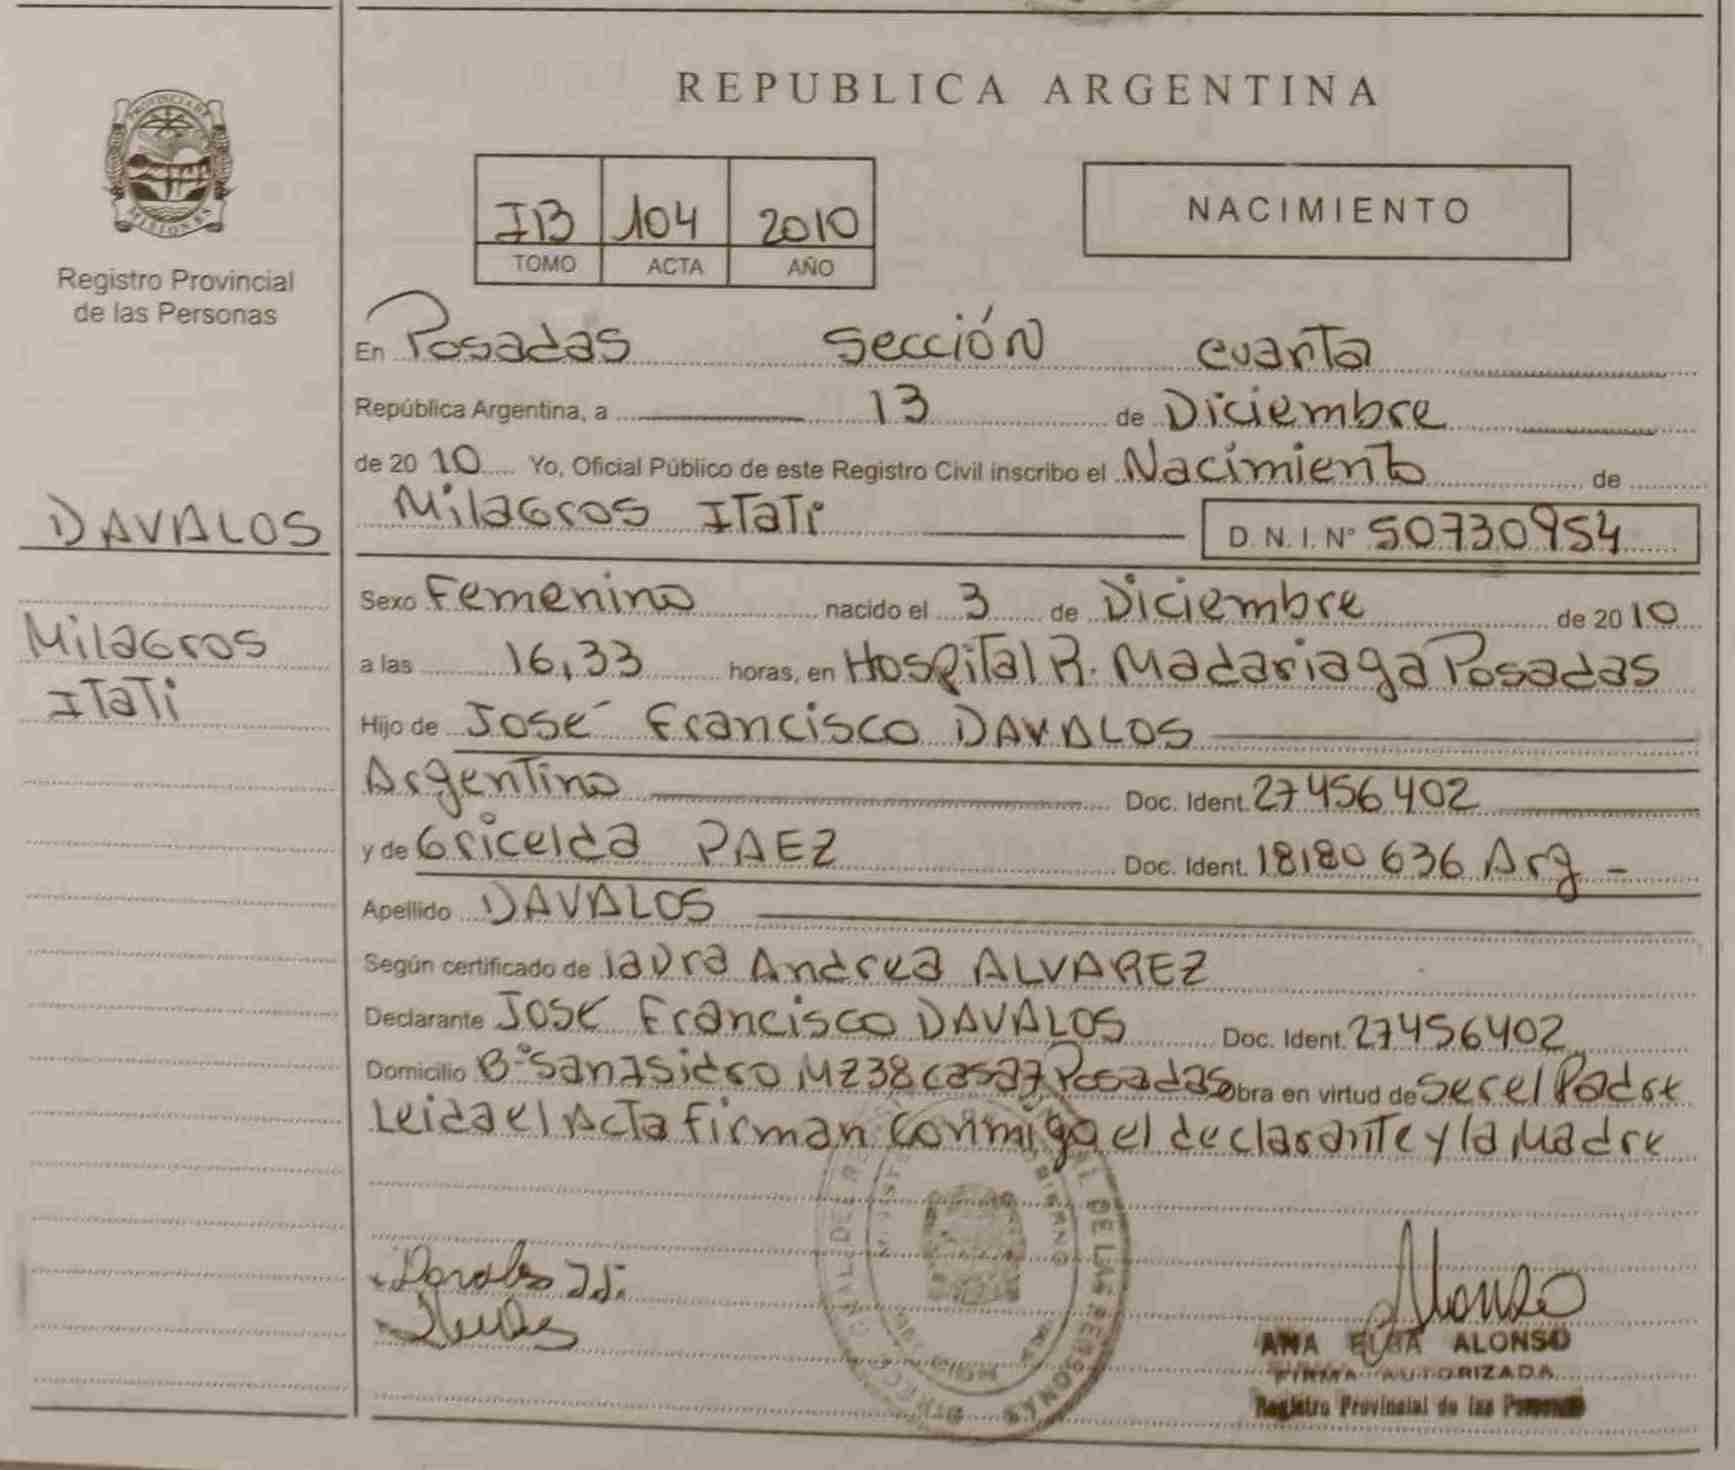 REPUBLICA ARGENTINA
PROVINCIA DE
MISIONES
Registro Provincial
de las Personas
IB 104 2010
TOMO ACTA AÑO
NACIMIENTO
En Posadas Sección cuarta
República Argentina, a 13 de Diciembre
de 2010 Yo, Oficial Público de este Registro Civil inscribo el Nacimiento de
DAVALOS
Milagros Itati
Milagros Itati D. N. I. Nº 50730954
Sexo Femenino nacido el 3 de Diciembre de 2010
a las 16,33 horas, en Hospital R. Madariaga Posadas
Hijo de José Francisco DAVALOS
Argentino Doc. Ident. 27456402
y de Gricelda PAEZ Doc. Ident. 18180636 Arg -
Apellido DAVALOS
Según certificado de laura Andrea ALVAREZ
Declarante José Francisco DAVALOS Doc. Ident. 27456402
Domicilio Bº San Isidro MZ 38 casa 7 Posadas Obra en virtud de ser el Padre
Leida el Acta firman conmigo el declarante y la Madre
Alonso
ANA ELBA ALONSO
FIRMA AUTORIZADA
Registro Provincial de las Personas